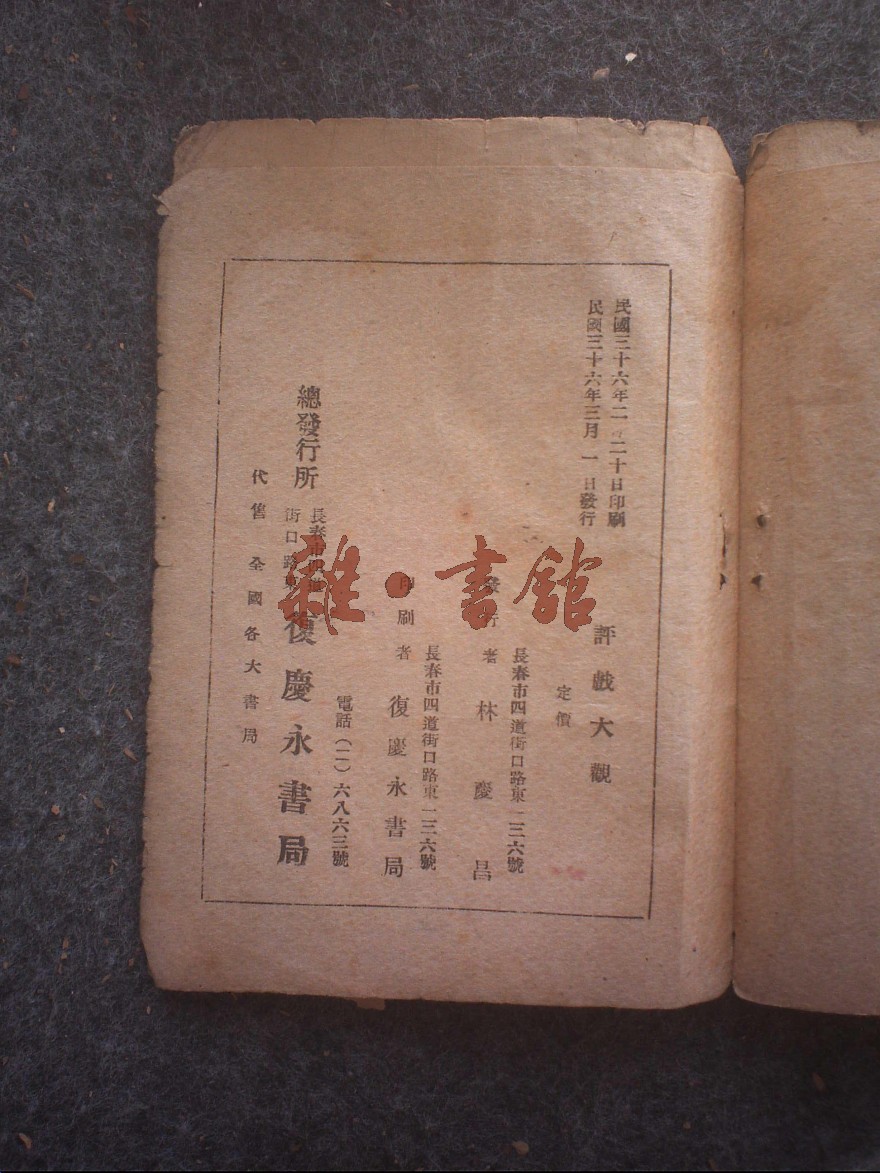 民國三十六年二 二十日印刷
民國三十六年三月一日發行
評戲大觀
定價
長春市四道街口路東一三六號
發行者 林慶昌
長春市四道街口路東一三六號
印刷者 復慶永書局
電話(二)六八六三號
總發行所 長春市四道
街口路東
復慶永書局
代售 全國各大書局
雜·書館